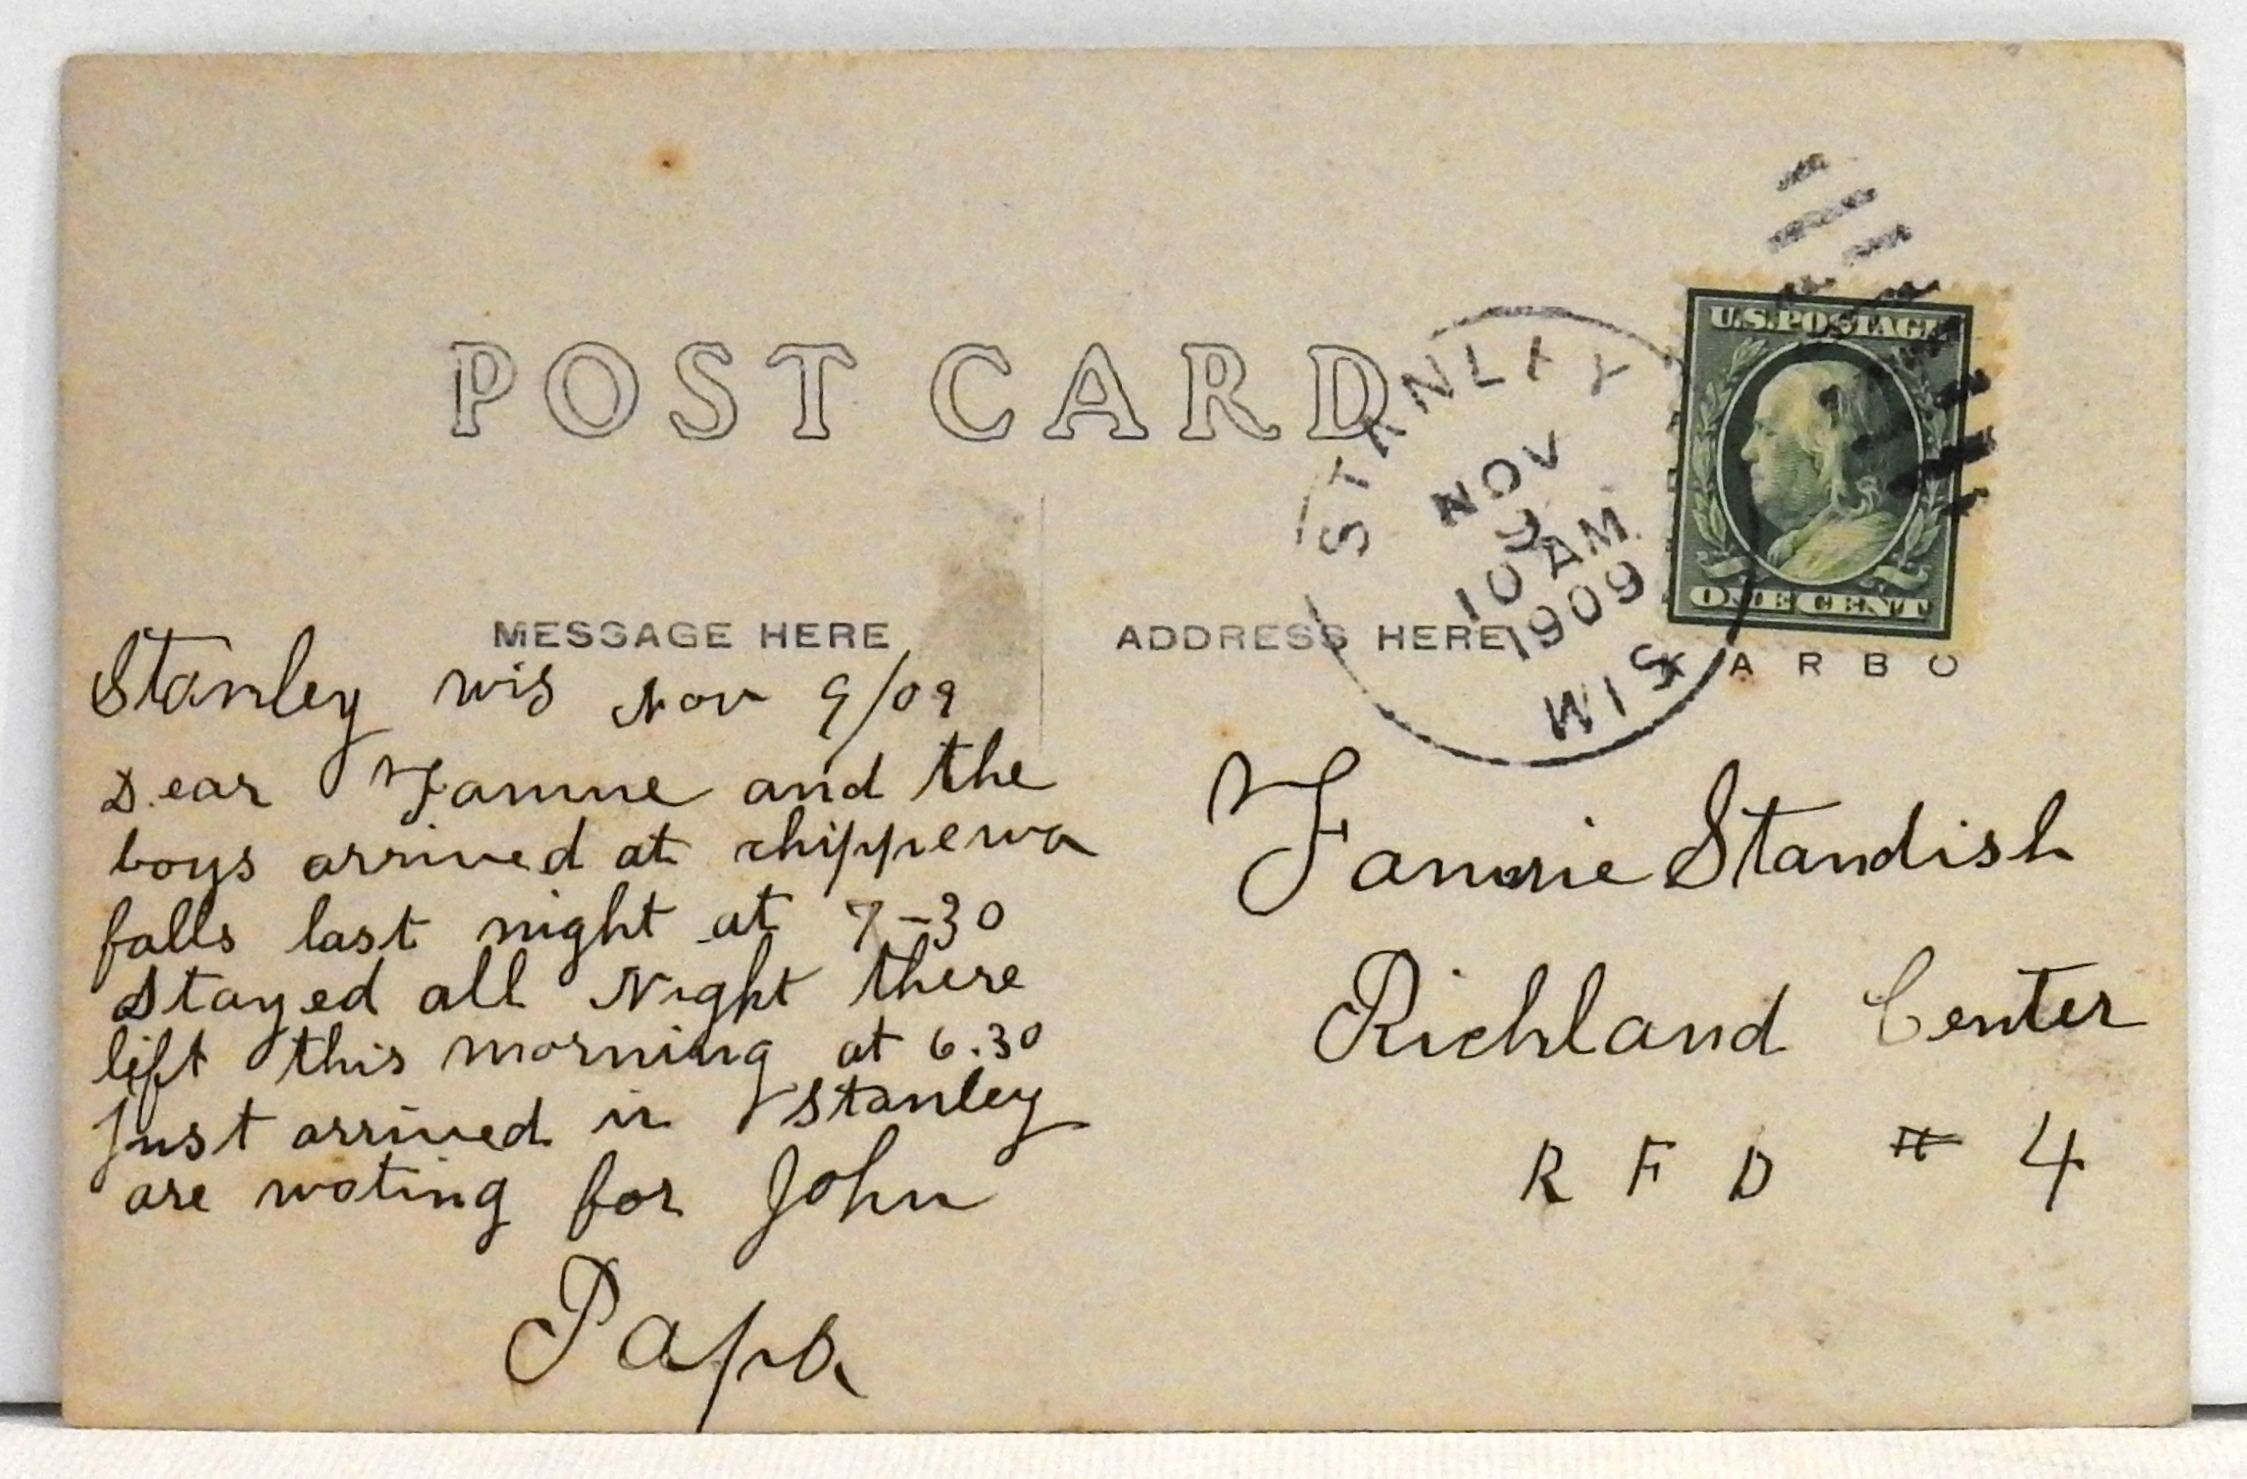 POST CARD
STANLEY
NOV
9
10 AM
1909
WIS
U.S.POSTAGE
ONE CENT
MESSAGE HERE
ADDRESS HERE
ARBO
Stanley Wis Nov 9/09
Dear Fannie and the
boys arrived at chippewa
falls last night at 7-30
Stayed all Night there
left this morning at 6.30
Just arrived in Stanley
are wating for John
Papa
Fannie Standish
Richland Center
R F D # 4